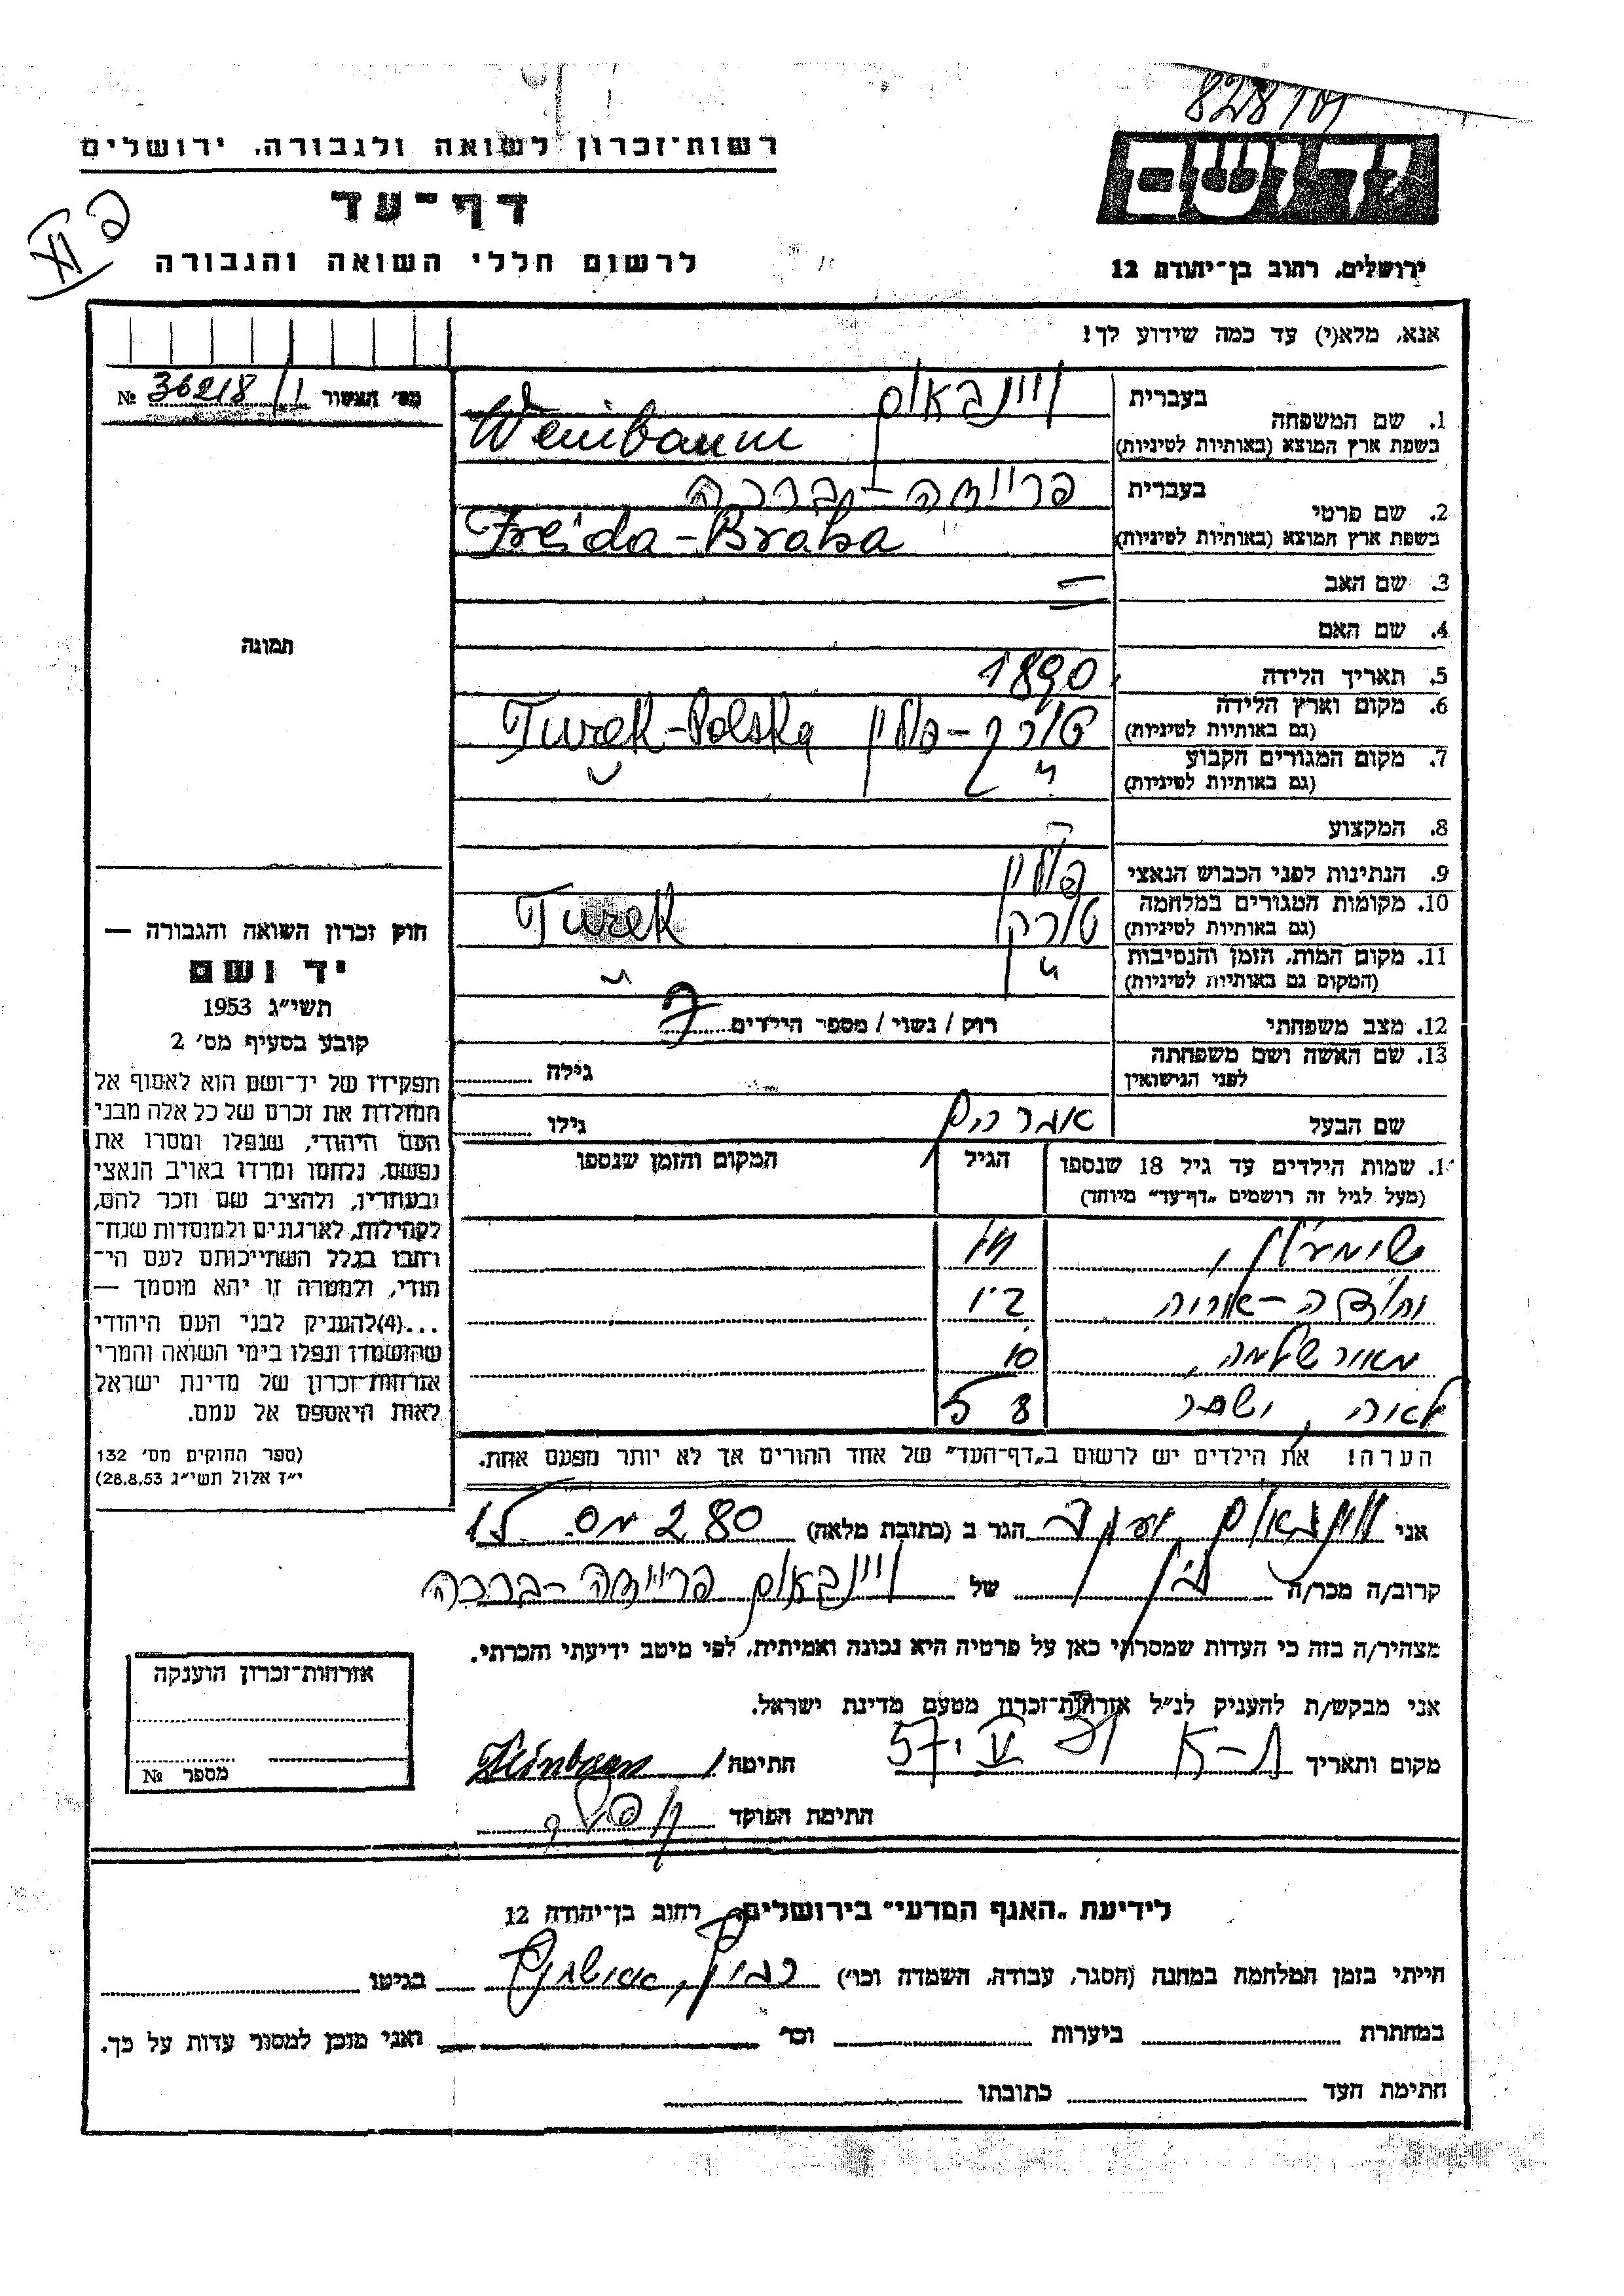 828/101
רשות־זכרון לשואה ולגבורה, ירושלים
יד ושם
דף־עד
לרשום חללי השואה והגבורה
ירושלים, רחוב בן־יהודה 12
אנא, מלא(י) עד כמה שידוע לך!
מס׳ תצטור 1/ 36218 №
בעברית
וויינבאום
1. שם המשפחה
בשפת ארץ המוצא (באותיות לטיניות)
Weinbaum
בעברית
פריידה-ברכה
2. שם פרטי
בשפת ארץ המוצא (באותיות לטיניות)
Freida-Braha
3. שם האב =
4. שם האם
תמונה
5. תאריך הלידה 1890
6. מקום וארץ הלידה
(גם באותיות לטיניות)
טורק-פולין Turek-Polska
7. מקום המגורים הקבוע
(גם באותיות לטיניות)
״ ״
8. המקצוע
9. הנתינות לפני הכבוש הנאצי פולין
10. מקומות המגורים במלחמה
(גם באותיות לטיניות)
טורק Turek
11. מקום המות, הזמן והנסיבות
(המקום גם באותיות לטיניות)
״ ״
12. מצב משפחתי רוק / נשוי / מספר הילדים 7
13. שם האשה ושם משפחתה
לפני הנישואין
גילה
שם הבעל אברהם גילו
חוק זכרון השואה והגבורה —
יד ושם
תשי״ג 1953
קובע בסעיף מס׳ 2
תפקידו של יד־ושם הוא לאסוף אל
המולדת את זכרם של כל אלה מבני
העם היהודי, שנפלו ומסרו את
נפשם, נלחמו ומרדו באויב הנאצי
ובעוזריו, ולהציב שם וזכר להם,
לקהילות, לארגונים ולמוסדות שנח־
רבו בגלל השתייכותם לעם הי־
הודי, ולמטרה זו יהא מוסמך —
...(4)להעניק לבני העם היהודי
שהושמדו ונפלו בימי השואה והמרי
אזרחות־זכרון של מדינת ישראל
לאות היאספם אל עמם.
(ספר החוקים מס׳ 132
י״ז אלול תשי״ג 28.8.53)
1. שמות הילדים עד גיל 18 שנספו
(מעל לגיל זה רושמים ״דף־עד״ מיוחד)
הגיל
המקום והזמן שנספו
שומעלן,
10
לאורה, ושכר 8 5
הערה! את הילדים יש לרשום ב״דף־העד״ של אחד ההורים אך לא יותר מפעם אחת.
אני ווינבאום יעקב הגר ב (כתובת מלאה) 280 מס. 15
קרוב/ה מכר/ה בן של וויינבאום פריידה-ברכה
מצהיר/ה בזה כי העדות שמסרתי כאן על פרטיה היא נכונה ואמיתית, לפי מיטב ידיעתי והכרתי.
אני מבקש/ת להעניק לנ״ל אזרחות־זכרון מטעם מדינת ישראל.
מקום ותאריך ת-א חתימה
חתימת הפוקד
אזרחות־זכרון הוענקה
מספר №
לידיעת ״האגף המדעי״ בירושלים, רחוב בן־יהודה 12
הייתי בזמן המלחמה במחנה (הסגר, עבודה, השמדה וכו׳) בגיטו
במחתרת ביערות וכו׳ ואני מוכן למסור עדות על כך.
חתימת העד כתובתו